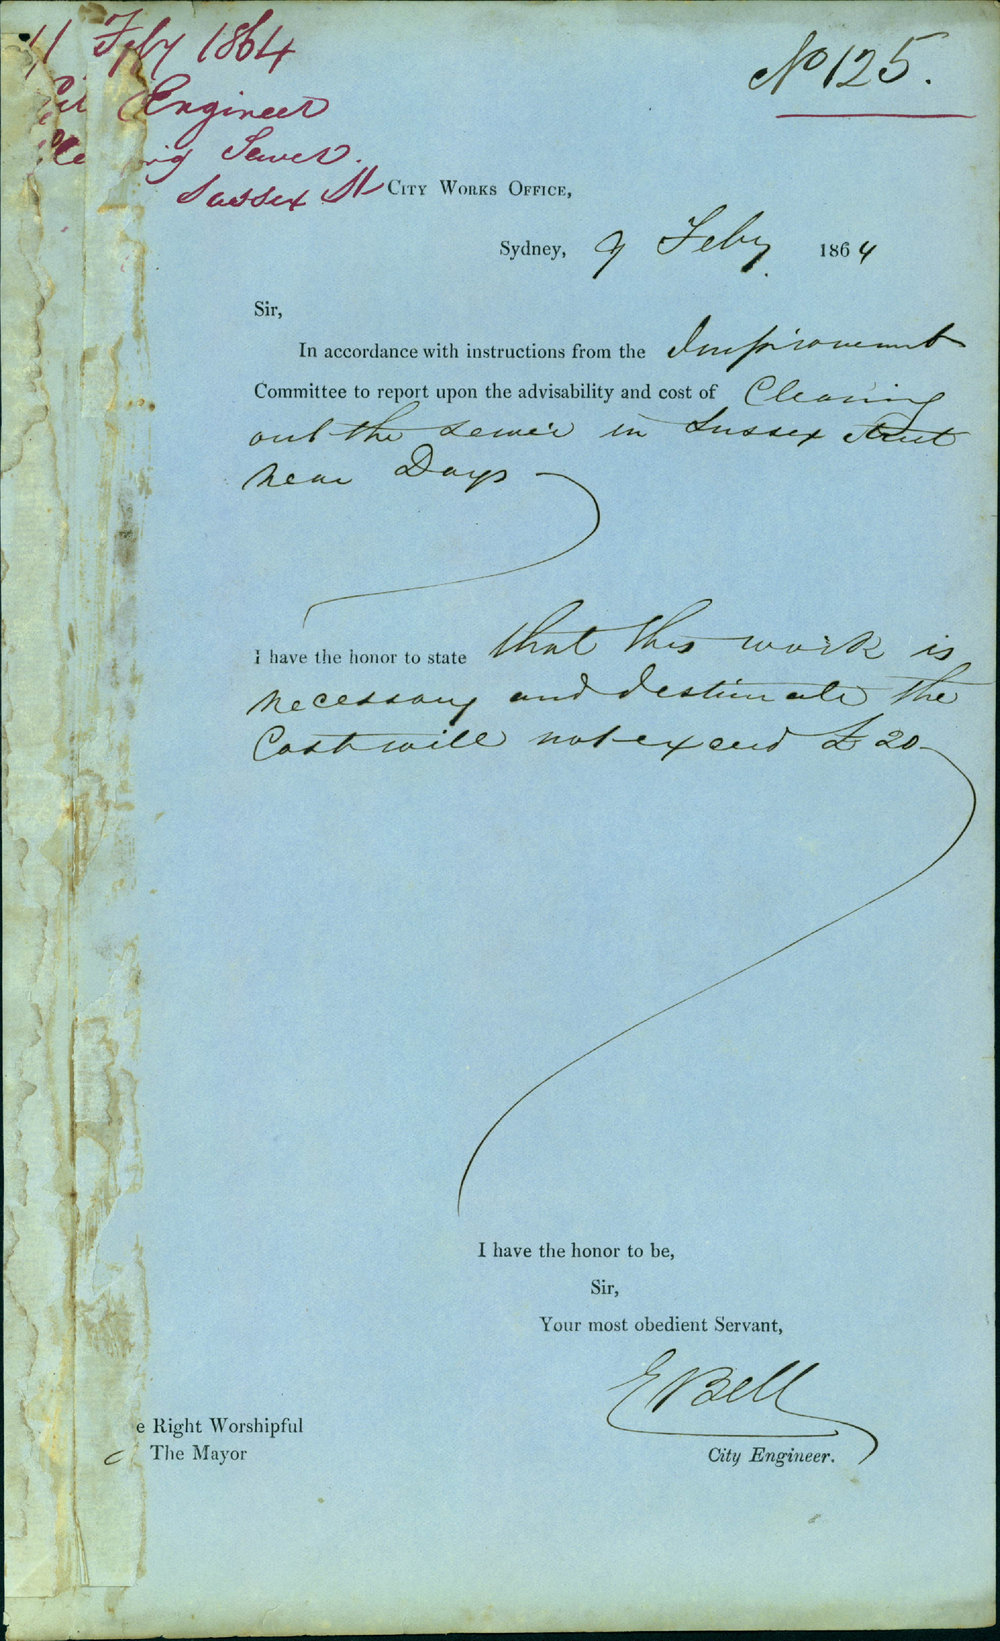 11 Feby 1864
No 125.
City Engineer
Sewer.
Sussex St
City Works Office,
Sydney, 9 Feby 1864
Sir,
In accordance with instructions from the Improvement
Committee to report upon the advisability and cost of Cleaning
out the sewer in Sussex Street
near Days
I have the honor to state that this work is
necessary and I estimate the
Cost will not exceed £20
I have the honor to be,
Sir,
Your most obedient Servant,
E Bell
e Right Worshipful
The Mayor
City Engineer.